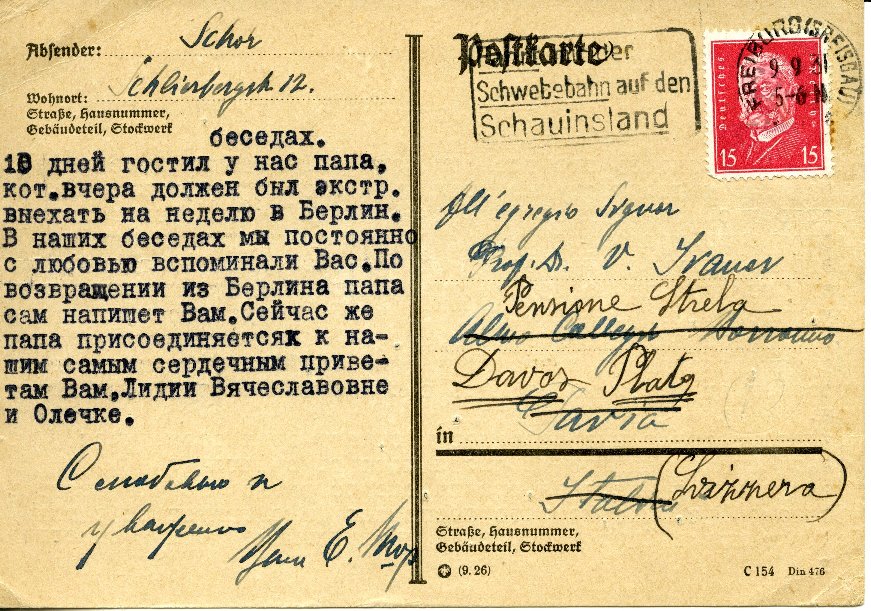 Absender: Schor
Schlierbergstr. 12.
Wohnort:
Straße, Hausnummer,
Gebäudeteil, Stockwerk
беседах.
10 дней гостил у нас папа,
кот.вчера должен был экстр.
выехать на неделю в Берлин.
В наших беседах мы постоянно
с любовью вспоминали Вас.По
возвращении из Берлина папа
сам напишет Вам.Сейчас же
папа присоединяетсяк к на-
шим самым сердечным приве-
там Вам,Лидии Вячеславовне
и Олечке.
С любовью и
уважением
Ваш Е. Шор
Postkarte
der
Schwebebahn auf den
Schauinsland
FREIBURG (BREISGAU)
9 9 31
5-6 N
Deutsches
15 15
All'egregio Signor
Prof. Dr. V. Ivanov
Pensione Strela
Almo Collegio Borromeo
Davos Platz
Pavia
in
Italia (Svizzera)
Straße, Hausnummer,
Gebäudeteil, Stockwerk
(9.26)
C 154 Din 476